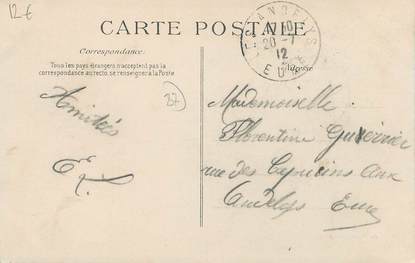 12€
CARTE POSTALE
Correspondance
Tous les pays étrangers n'acceptent pas la
correspondance au recto, se renseigner à la Poste
Adresse
20 - 1
12
EURE
27
Amitiés
Mademoiselle
Florentine
rue des Capucins aux
Andelys Eure